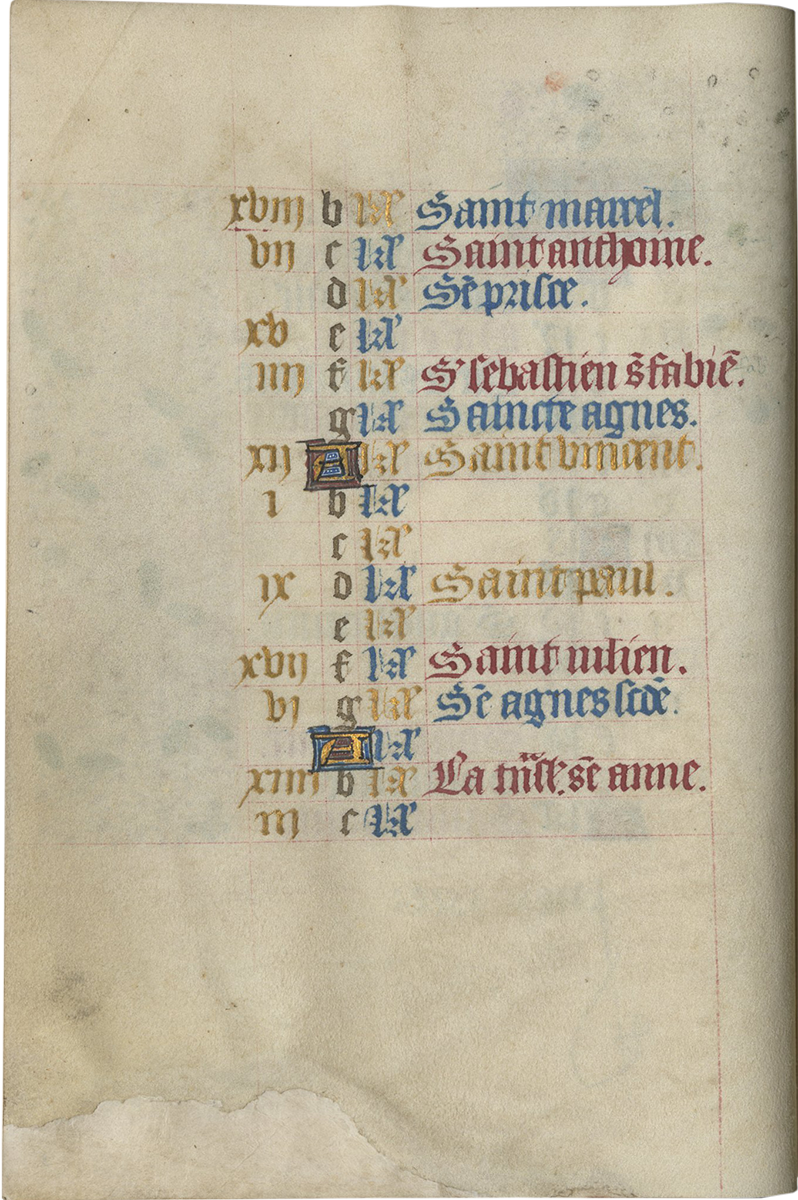 xviij b kl' Saint marcel.
vij c kl' Saint anthoine.
d kl' Sē prisce.
xv e kl'
iiij f kl' S' sebastien s̄ fabiē.
g kl' Saincte agnes.
xij A kl' Saint vincent.
i b kl'
c kl'
ix d kl' Saint paul.
e kl'
xvij f kl' Saint iulien.
vj g kl' Sē agnes
A kl'
xiiij b kl' La sē anne.
iij c kl'